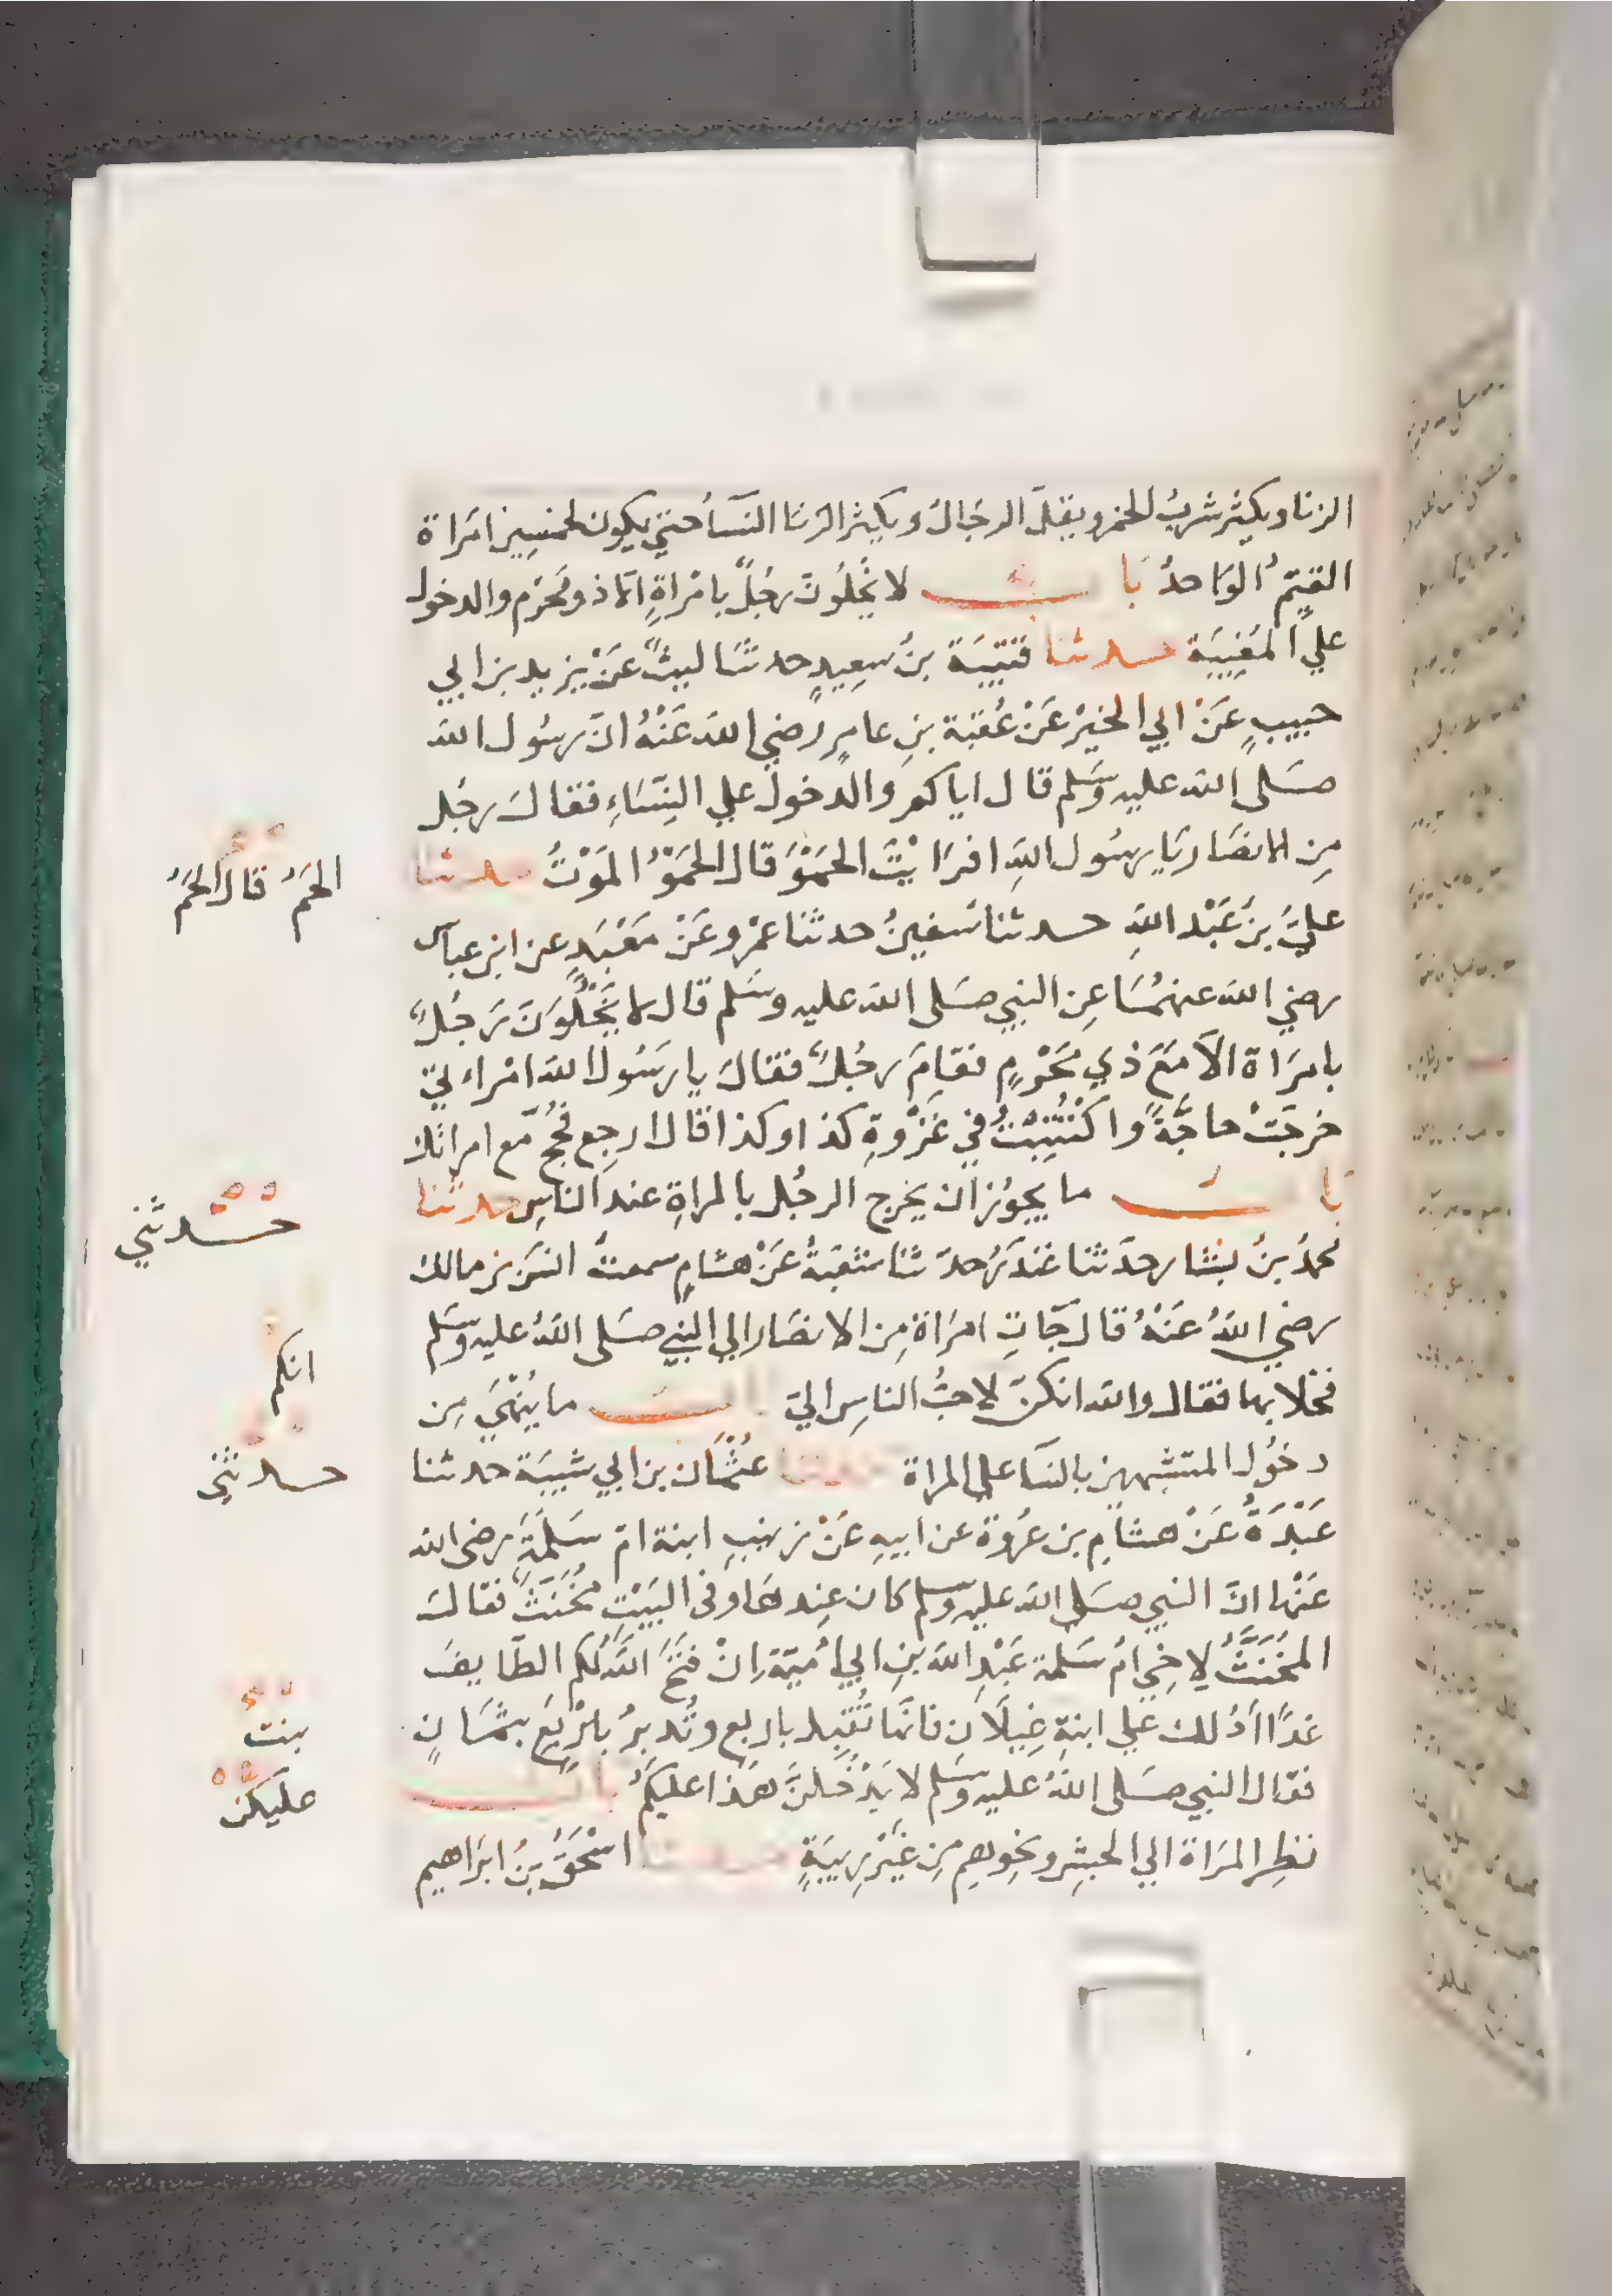 الزنا ويكثر شرب الخمر ويقل الرجال ويكثر الزنا النسأ حتي يكون لخمسين امراة
القيم الواحد باب لا يخلون رجل بامراة الا ذو محرم والدخول
علي المغيبة حدثنا قتيبة بن سعيد حدثنا ليث عن يزيد بن ابي
حبيب عن ابي الخير عن عقبة بن عامر رضي الله عنه ان رسول الله
صلى الله عليه وسلم قال اياكم والدخول علي النساء فقال رجل
من الانصار يا رسول الله افرايت الحمو قال الحمو الموت حدثنا
علي بن عبد الله حدثنا سفين حدثنا عمرو عن معبد عن ابن عباس
رضي الله عنهما عن النبي صلى الله عليه وسلم قال لا يخلون رجل
بامراة الا مع ذي محرم فقام رجل فقال يا رسول الله امراءتي
خرجت حاجة واكتتبت في غزوة كذا وكذا قال ارجع فحج مع امراتك
باب ما يجوز ان يخرج الرجل بالمراة عند الناس حدثنا
محمد بن بشار حدثنا غندر حدثنا شعبة عن هشام سمعت انس بن مالك
رضي الله عنه قال جآت امراة من الانصار الي النبي صلى الله عليه وسلم
فخلا بها فقال والله انكن لاحب الناس الي باب ما ينهي من
دخول المتشبهين بالنسآ على المراة حدثنا عثمان بن ابي شيبة حدثنا
عبدة عن هشام بن عروة عن ابيه عن زينب ابنة ام سلمة رضى الله
عنها ان النبي صلى الله عليه وسلم كان عندها وفى البيت مخنث فقال
المخنث لاخي ام سلمة عبد الله بن ابي امية ان فتح الله لكم الطايف
غدا ادلك علي ابنة غيلان فانها تقبل باربع وتدبر باربع بثمان
فقال النبي صلى الله عليه وسلم لا يدخلن هذا عليكم باب
نظر المراة الي الحبش ونحوهم من غير ريبة حدثنا اسحق بن ابراهيم
الحم قال الحم
حدثني
انكم
حدثني
بنت
عليكن